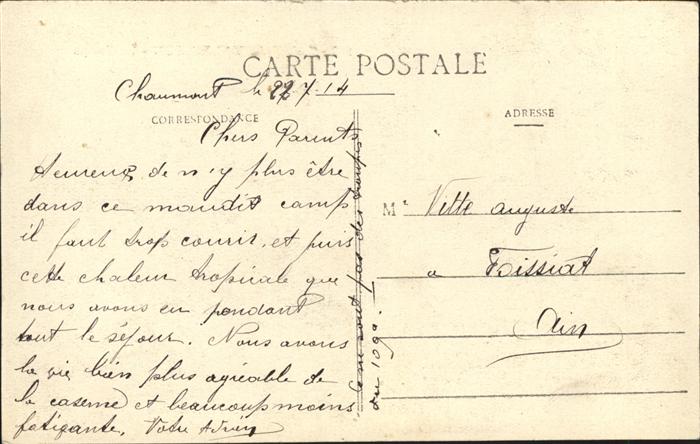 CARTE POSTALE
Chaumont le 22.7.14
CORRESPONDANCE
Chers Parents
Heureux de n'y plus être
dans ce maudit camp
il faut trop courir, et puis
cette chaleur tropicale que
nous avons eu pendant
tout le séjour. Nous avons
la vie bien plus agréable de
la caserne et beaucoup moins
fatigante. Votre Adrien
ce ne sont pas des troupes
du 109e
ADRESSE
M Vette auguste
a Foissiat
Ain